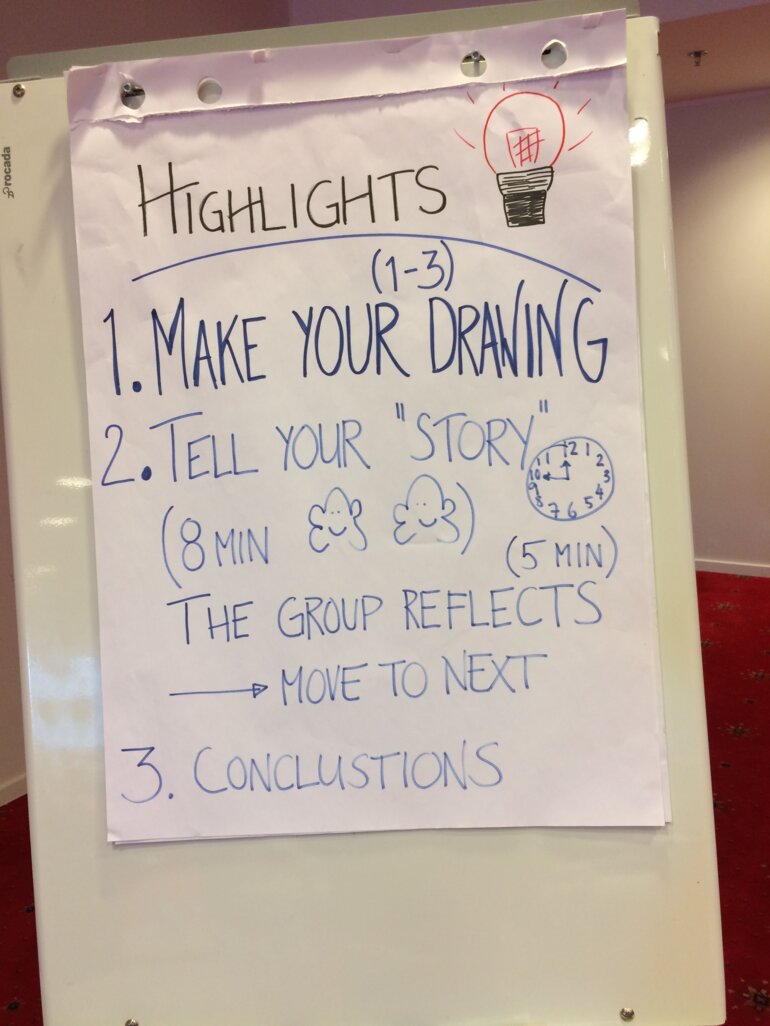 rocada
HIGHLIGHTS
(1-3)
1. MAKE YOUR DRAWING
2. TELL YOUR "STORY"
12 1 2 3 4 5 6 7 8 9 10 11
(8 MIN )
(5 MIN)
THE GROUP REFLECTS
→ MOVE TO NEXT
3. CONCLUSTIONS